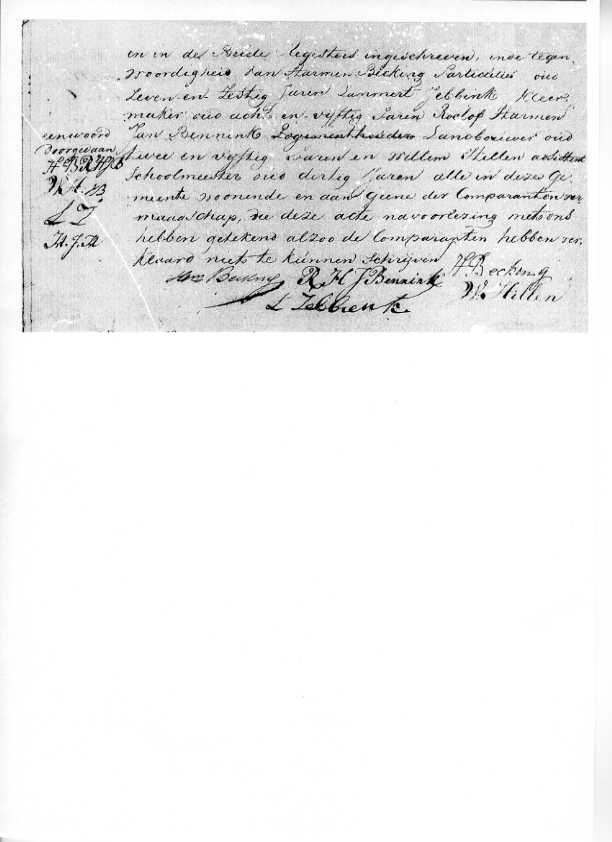 en in de Beide registers ingeschreven, inde tegen
woordigheid van Harmen Becking Particulier oud
Zeven en Zestig Jaren Lammert Jebbink Kleer
maker oud acht en vyftig Jaren Roelof Harmen
Jan Bennink Logementhouder Landbouwer oud
twee en vyftig Jaren en Willem Hillen
Schoolmeester oud dertig Jaren alle in dezes Ge
meente woonende en aan geene der Comparanten ver
maagschap, die deze acte na voorlezing met ons
hebben getekend alzoo de Comparanten hebben ver
klaard niet te kunnen Schrijven
eenwoord
doorgehaan
L J
H Becking
R H J Bennink
W Hillen
L Jebbink